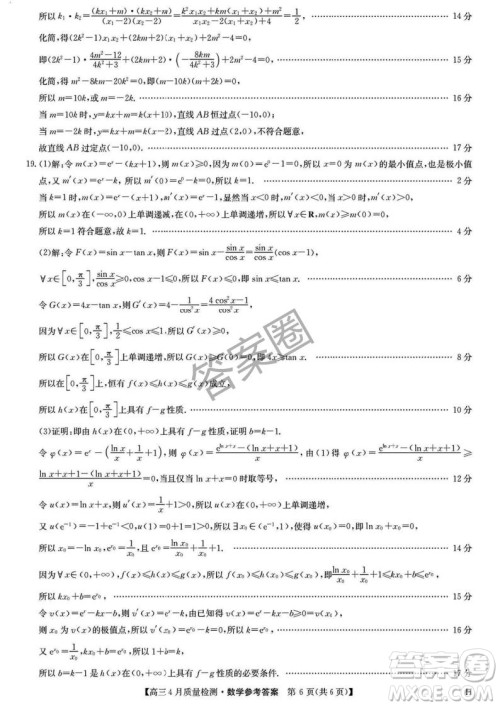 所以 k₁·k₂=(kx₁+m)/(x₁-2)·(kx₂+m)/(x₂-2)=(k²x₁x₂+km(x₁+x₂)+m²)/((x₁-2)(x₂-2))=1/2, 14分
化简,得(2k²-1)x₁x₂+(2km+2)(x₁+x₂)+2m²-4=0,
即(2k²-1)·(4m²-12)/(4k²+3)+(2km+2)·(-8km/(4k²+3))+2m²-4=0, 15分
化简,得m²-8km-20k²=0,
所以m=10k,或m=-2k. 16分
当m=10k时,y=kx+m=k(x+10),直线AB恒过点(-10,0);
当m=-2k时,y=kx+m=k(x-2),直线AB恒过点(2,0),不符合题意,
故直线AB过定点(-10,0). 17分
19.(1)解:令m(x)=eˣ-(kx+1),则m(x)≥0,因为m(0)=e⁰-1=0,所以x=0为m(x)的最小值点,也是极小值
点,又m′(x)=eˣ-k,所以m′(0)=1-k=0,所以k=1. 2分
当k=1时,m′(x)=eˣ-1,m′(x)单调递增,显然当x<0时,m′(x)<0,当x>0时,m′(x)>0,
所以m(x)在(-∞,0)上单调递减,在(0,+∞)上单调递增,所以∀x∈R,m(x)≥m(0)=0,
所以k=1符合题意,故k=1. 4分
(2)解:令F(x)=sin x-tan x,则F(x)=sin x-sin x/cos x=sin x/cos x(cos x-1),
∀x∈[0,π/3],sin x/cos x≥0,cos x-1≤0,所以F(x)≤0,即sin x≤tan x. 6分
令G(x)=4x-tan x,则G′(x)=4-1/cos²x=(4cos²x-1)/cos²x,
因为∀x∈[0,π/3],1/2≤cos x≤1,所以G′(x)≥0,
所以G(x)在[0,π/3]上单调递增,所以G(x)≥G(0)=0,即4x≥tan x. 8分
所以对∀x∈[0,π/3],恒有f(x)≤h(x)≤g(x)成立,
所以h(x)在[0,π/3]上具有f-g性质. 10分
(3)证明:即由h(x)在(0,+∞)上具有f-g性质,证明b=k-1.
令φ(x)=eˣ-(ln x/x+1/x+1),则φ(x)=(xeˣ-(ln x+x+1))/x=(e^(ln x+x)-(ln x+x+1))/x≥
(ln x+x+1-(ln x+x+1))/x=0,当且仅当ln x+x=0时,等号成立. 12分
令u(x)=ln x+x,易知u(x)在(0,+∞)上单调递增,
又u(e⁻¹)=-1+e⁻¹<0,u(1)=1>0,所以∃x₀∈(e⁻¹,1),使得u(x₀)=ln x₀+x₀=0,
所以x₀=-ln x₀,e^(x₀)=1/x₀,所以e^(x₀)=ln x₀/x₀+1/x₀+1. 14分
因为∀x∈(0,+∞),f(x)≤h(x)≤g(x),所以f(x₀)≤h(x₀)≤g(x₀),又f(x₀)=g(x₀)=e^(x₀),
所以kx₀+b=e^(x₀), 15分
令v(x)=eˣ-kx-b,则v′(x)=eˣ-k,v(x)≥0,v(x₀)=0,
所以x₀为v(x)的极值点,所以v′(x₀)=0,所以k=e^(x₀), 16分
所以kx₀+b=e^(x₀)·1/e^(x₀)... 
所以b=k-1是h(x)在(0,+∞)上具有f-g性质的必要条件. 17分
【高三4月质量检测·数学参考答案 第6页(共6页)】
答案圈